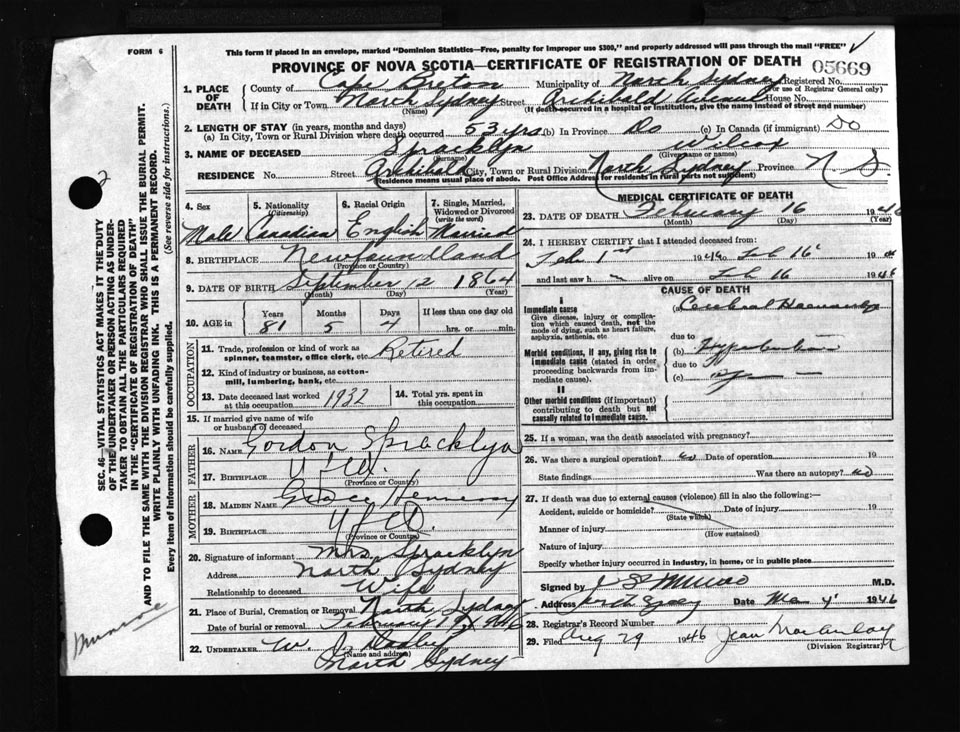 FORM 6
This form if placed in an envelope, marked "Dominion Statistics—Free, penalty for improper use $300," and properly addressed will pass through the mail "FREE"
PROVINCE OF NOVA SCOTIA—CERTIFICATE OF REGISTRATION OF DEATH
05669
1. PLACE OF DEATH
County of Cape Breton Municipality of North Sydney Registered No.
(For use of Registrar General only)
If in City or Town North Sydney Street Archibald Avenue House No.
(Name) (If death occurred in a hospital or institution, give the name instead of street and number)
2. LENGTH OF STAY (in years, months and days)
(a) In City, Town or Rural Division where death occurred 53 yrs (b) In Province Do (c) In Canada (if immigrant) Do
3. NAME OF DECEASED Spracklyn Wilcox
(Surname) (Given name or names)
RESIDENCE No. Street Archibald City, Town or Rural Division North Sydney Province N S
(Residence means usual place of abode. Post Office Address for residents in rural parts not sufficient)
4. Sex
Male
5. Nationality
(Citizenship)
Canadian
6. Racial Origin
English
7. Single, Married, Widowed or Divorced
(write the word)
Married
8. BIRTHPLACE Newfoundland
(Province or Country)
9. DATE OF BIRTH September 12 1864
(Month) (Day) (Year)
10. AGE in
Years Months Days If less than one day old
81 5 4 hrs. or min.
OCCUPATION
11. Trade, profession or kind of work as spinner, teamster, office clerk, etc. Retired
12. Kind of industry or business, as cotton-mill, lumbering, bank, etc.
13. Date deceased last worked at this occupation 1932
14. Total yrs. spent in this occupation
15. If married give name of wife or husband of deceased
FATHER
16. NAME Gordon Spracklyn
17. BIRTHPLACE Nfld.
(Province or Country)
MOTHER
18. MAIDEN NAME Grace Hennessy
19. BIRTHPLACE Nfld.
(Province or Country)
20. Signature of informant Mrs. Spracklyn
Address North Sydney
Relationship to deceased Wife
21. Place of Burial, Cremation or Removal North Sydney
Date of burial or removal February 1946
22. UNDERTAKER W. J. Dooley
(Name and address)
North Sydney
MEDICAL CERTIFICATE OF DEATH
23. DATE OF DEATH February 16 1946
(Month) (Day) (Year)
24. I HEREBY CERTIFY that I attended deceased from:
Feb 1st 1946 to Feb 16 1946
and last saw h alive on Feb 16 1946
CAUSE OF DEATH
I
Immediate cause
Give disease, injury or complication which caused death, not the mode of dying, such as heart failure, asphyxia, asthenia, etc
Cerebral Haemorrhage
due to
Morbid conditions, if any, giving rise to immediate cause (stated in order proceeding backwards from immediate cause).
(b) Hypertension
due to
(c)
II
Other morbid conditions (if important) contributing to death but not causally related to immediate cause.
25. If a woman, was the death associated with pregnancy?
26. Was there a surgical operation? no Date of operation 19
State findings Was there an autopsy? no
27. If death was due to external causes (violence) fill in also the following:—
Accident, suicide or homicide? Date of injury 19
(State which)
Manner of injury
(How sustained)
Nature of injury
Specify whether injury occurred in industry, in home, or in public place
Signed by Munro M.D.
Address Date 1946
28. Registrar's Record Number
29. Filed Aug 29 1946 Jean
(Division Registrar)
SEC. 46—VITAL STATISTICS ACT MAKES IT THE DUTY OF THE UNDERTAKER OR PERSON ACTING AS UNDERTAKER TO OBTAIN ALL THE PARTICULARS REQUIRED IN THE "CERTIFICATE OF REGISTRATION OF DEATH" AND TO FILE THE SAME WITH THE DIVISION REGISTRAR WHO SHALL ISSUE THE BURIAL PERMIT.
WRITE PLAINLY WITH UNFADING INK. THIS IS A PERMANENT RECORD.
Every item of Information should be carefully supplied. (See reverse side for instructions.)
Munroe